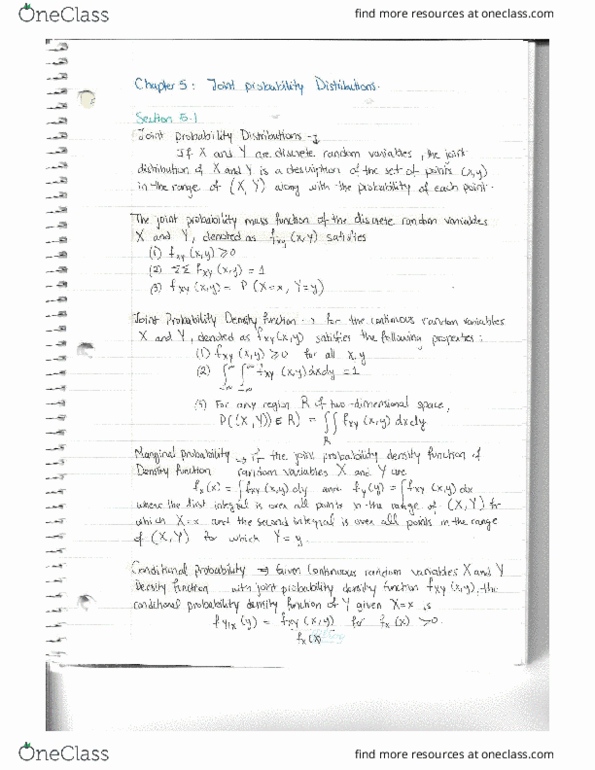 OneClass
find more resources at oneclass.com
Chapter 5: Joint probability Distributions.
Section 5.1
Joint probability Distributions →
If X and Y are discrete random variables, the joint
distribution of X and Y is a description of the set of points (x,y)
in the range of (X, Y) along with the probability of each point.
The joint probability mass function of the discrete random variables
X and Y, denoted as fxy (x,y) satisfies
(1) fxy (x,y) ≥ 0
(2) ΣΣ fxy (x,y) = 1
(3) fxy (x,y) = P (X=x, Y=y)
Joint Probability Density function → for the continuous random variables
X and Y, denoted as fxy (x,y) satisfies the following properties:
(1) fxy (x,y) ≥ 0 for all x, y
(2) ∫-∞^∞ ∫-∞^∞ fxy (x,y) dx dy = 1
(3) For any region R of two-dimensional space,
P((X, Y) ∈ R) = ∫∫R fxy (x,y) dx dy
Marginal probability → if the joint probability density function of
Density function random variables X and Y are
fx (x) = ∫ fxy (x,y) dy and fy (y) = ∫ fxy (x,y) dx
where the first integral is over all points in the range of (X, Y) for
which X=x and the second integral is over all points in the range
of (X, Y) for which Y = y.
Conditional probability → Given continuous random variables X and Y
Density function with joint probability density function fxy (x,y), the
conditional probability density function of Y given X=x is
fY|x (y) = fxy (x,y) for fx (x) > 0.
fx (x)
OneClass
find more resources at oneclass.com